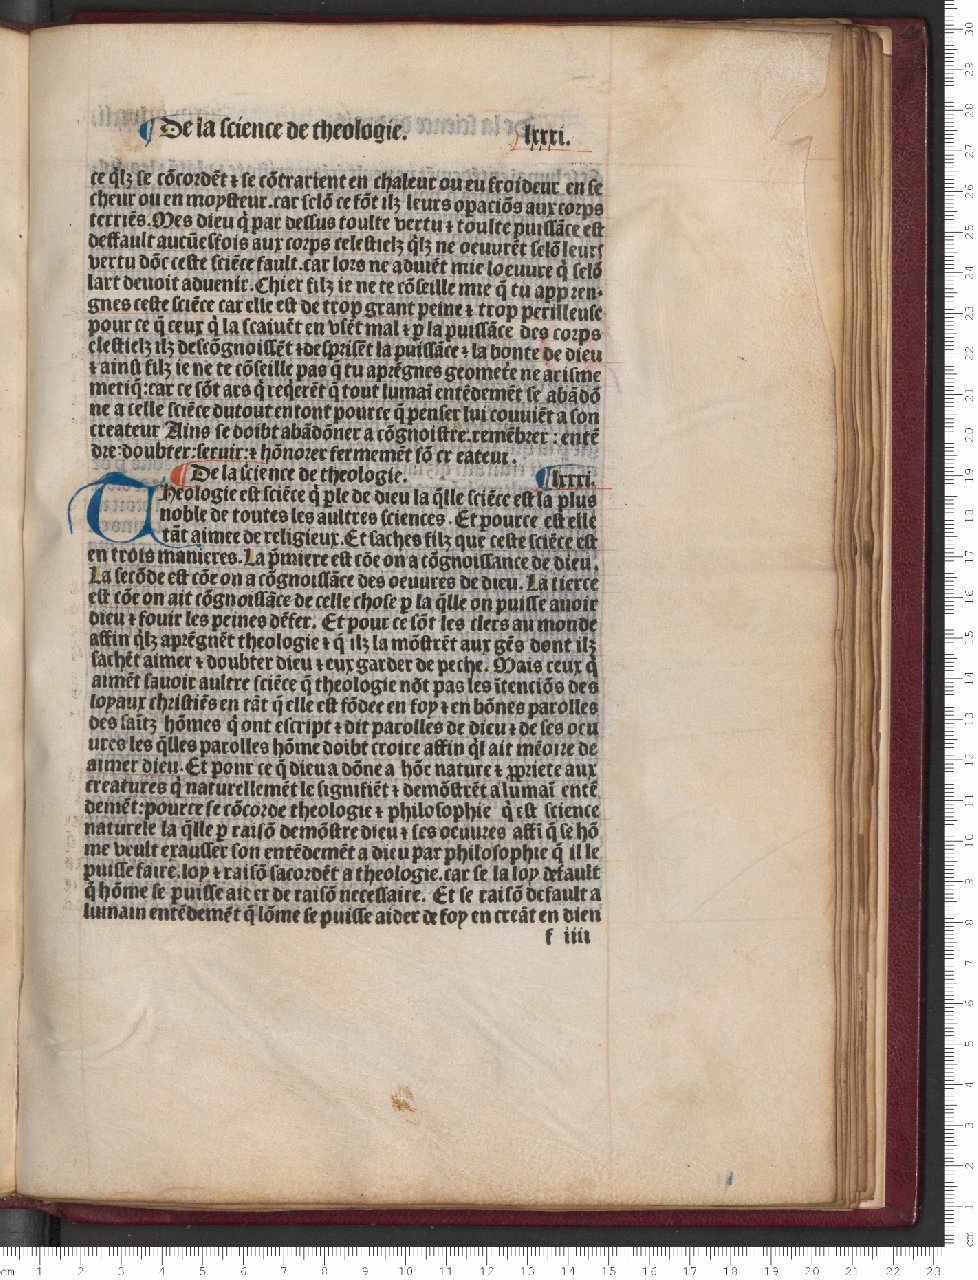 ¶ De la science de theologie. lxxxi.
ce q̄lz se cōcordēt ⁊ se cōtrarient en chaleur ou eu froideur en se
cheur ou en moysteur.car selō ce fōt ilz leurs oꝑaciōs aux corps
terriēs.Mes dieu q̄ par dessus toulte vertu ⁊ toulte puissāce est
deffault aucūesfois aux corps celestielz q̄lz ne oeuurēt selō leurs
vertu dōc ceste sciēce fault.car lors ne aduiēt mie loeuure q̄ selō
lart deuoit aduenir.Chier filz ie ne te cōseille mie q̄ tu appren-
gnes ceste sciēce car elle est de trop grant peine ⁊ trop perilleuse
pour ce q̄ ceux q̄ la scaiuēt en vsēt mal ⁊ ꝑ la puissāce des corps
celestielz ilz descōgnoissēt ⁊ desprisēt la puissāce ⁊ la bonte de dieu
⁊ ainsi filz ie ne te cōseille pas q̄ tu aprēgnes geometre ne arisme
metiq̄:car ce sōt ars q̄ reqerēt q̄ tout lumaī entēdemēt se abādō
ne a celle sciēce dutout en tont pource q̄ penser lui couuiēt a son
createur Ains se doibt abādōner a cōgnoistre.remēbrer : entē
dre:doubter:seruir:⁊ hōnorer fermemēt sō cr eateur.
¶ De la science de theologie. ¶ lxxxi.
Theologie est sciēce q̄ ꝑle de dieu la q̄lle sciēce est la plus
noble de toutes les aultres sciences. Et pource est elle
tāt aimee de religieux.Et saches filz que ceste sciēce est
en trois manieres.La p̄miere est cōe on a cōgnoissance de dieu.
La secōde est cōe on a cōgnoissāce des oeuures de dieu. La tierce
est cōe on ait cōgnoissāce de celle chose ꝑ la q̄lle on puisse auoir
dieu ⁊ fouir les peines dēfer. Et pour ce sōt les clers au monde
affin q̄lz aprēgnēt theologie ⁊ q̄ ilz la mōstrēt aux gēs dont ilz
sachēt aimer ⁊ doubter dieu ⁊ eux garder de peche. Mais ceux q̄
aimēt sauoir aultre sciēce q̄ theologie nōt pas les ītenciōs des
loyaux christiēs en tāt q̄ elle est fōdee en foy ⁊ en bōnes parolles
des saītz hōmes q̄ ont escript ⁊ dit parolles de dieu ⁊ de ses oeu
ures les q̄lles parolles hōme doibt croire affin q̄l ait mēoire de
aimer dieu. Et pour ce q̄ dieu a dōne a hōe nature ⁊ ꝓpriete aux
creatures q̄ naturellemēt le signifiēt ⁊ demōstrēt a lumaī entē
demēt:pource se cōcorde theologie ⁊ philosophie q̄ est science
naturele la q̄lle ꝑ raisō demōstre dieu ⁊ ses oeuures affī q̄ se hō
me veult exausser son entēdemēt a dieu par philosophie q̄ il le
puisse faire.loy ⁊ raisō sacordēt a theologie.car se la loy default
q̄ hōme se puisse aider de raisō necessaire. Et se raisō default a
lumain entēdemēt q̄ lōme se puisse aider de foy en creāt en dieu
f iiii